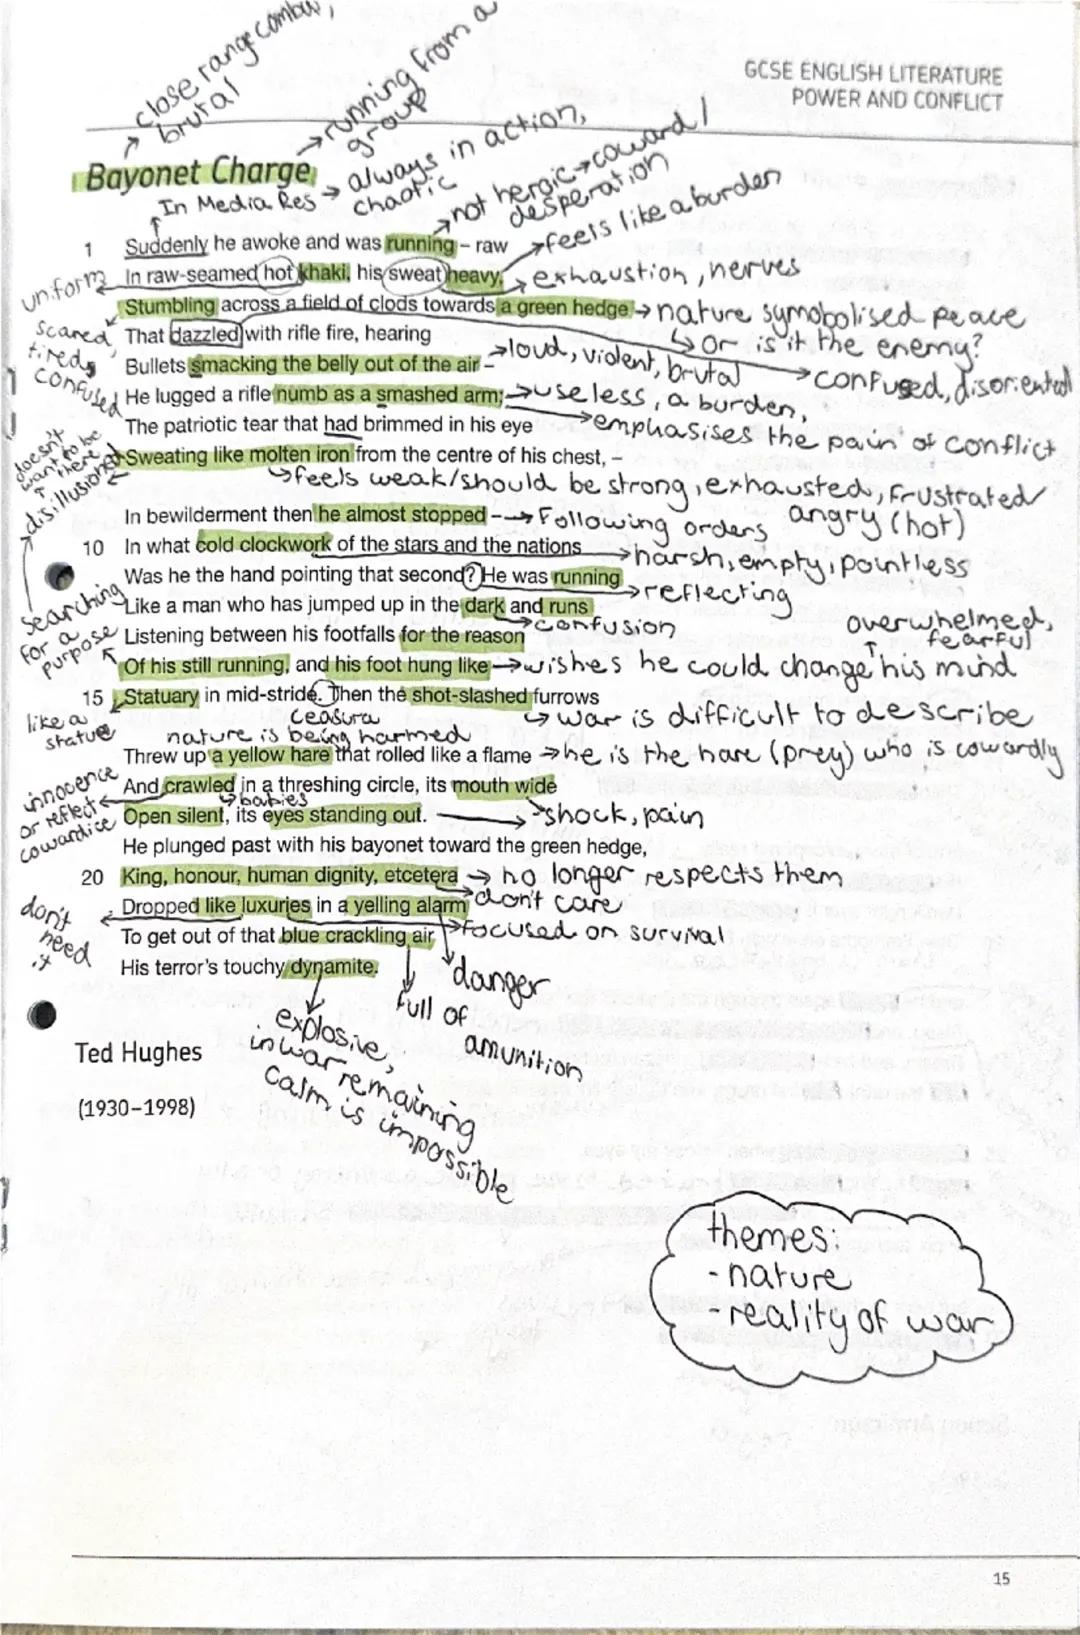 close range combat,
brutal
running from a
group
GCSE ENGLISH LITERATURE
POWER AND CONFLICT
Bayonet Charge
In Media Res → always in action,
chaotic
not heroic → coward /
desperation
feels like a burden
1 Suddenly he awoke and was running – raw
uniform
In raw-seamed hot khaki, his sweat heavy,
exhaustion, nerves
Stumbling across a field of clods towards a green hedge → nature symobolised peace
or is it the enemy?
scared,
tired,
confused
That dazzled with rifle fire, hearing
Bullets smacking the belly out of the air –
loud, violent, brutal
confused, disoriented
He lugged a rifle numb as a smashed arm; → useless, a burden,
The patriotic tear that had brimmed in his eye
emphasises the pain of conflict
doesn't
want to be
there
disillusioned
Sweating like molten iron from the centre of his chest, –
feels weak/should be strong, exhausted, frustrated
angry (hot)
In bewilderment then he almost stopped – → Following orders
10 In what cold clockwork of the stars and the nations
harsh, empty, pointless
Was he the hand pointing that second? He was running
reflecting
searching
for a
purpose
Like a man who has jumped up in the dark and runs
confusion
overwhelmed,
fearful
Listening between his footfalls for the reason
Of his still running, and his foot hung like → wishes he could change his mind
15 Statuary in mid-stride. Then the shot-slashed furrows
like a
statue
ceasura
war is difficult to describe
nature is being harmed
Threw up a yellow hare that rolled like a flame → he is the hare (prey) who is cowardly
innocence
or reflect
cowardice
And crawled in a threshing circle, its mouth wide
babies
Open silent, its eyes standing out.
shock, pain
He plunged past with his bayonet toward the green hedge,
20 King, honour, human dignity, etcetera → no longer respects them
don't care
don't
need
it
Dropped like luxuries in a yelling alarm
focused on survival
To get out of that blue crackling air
danger
His terror's touchy dynamite.
full of
amunition
explosive,
in war remaining
calm is impossible
Ted Hughes
(1930–1998)
themes:
- nature
- reality of war
15